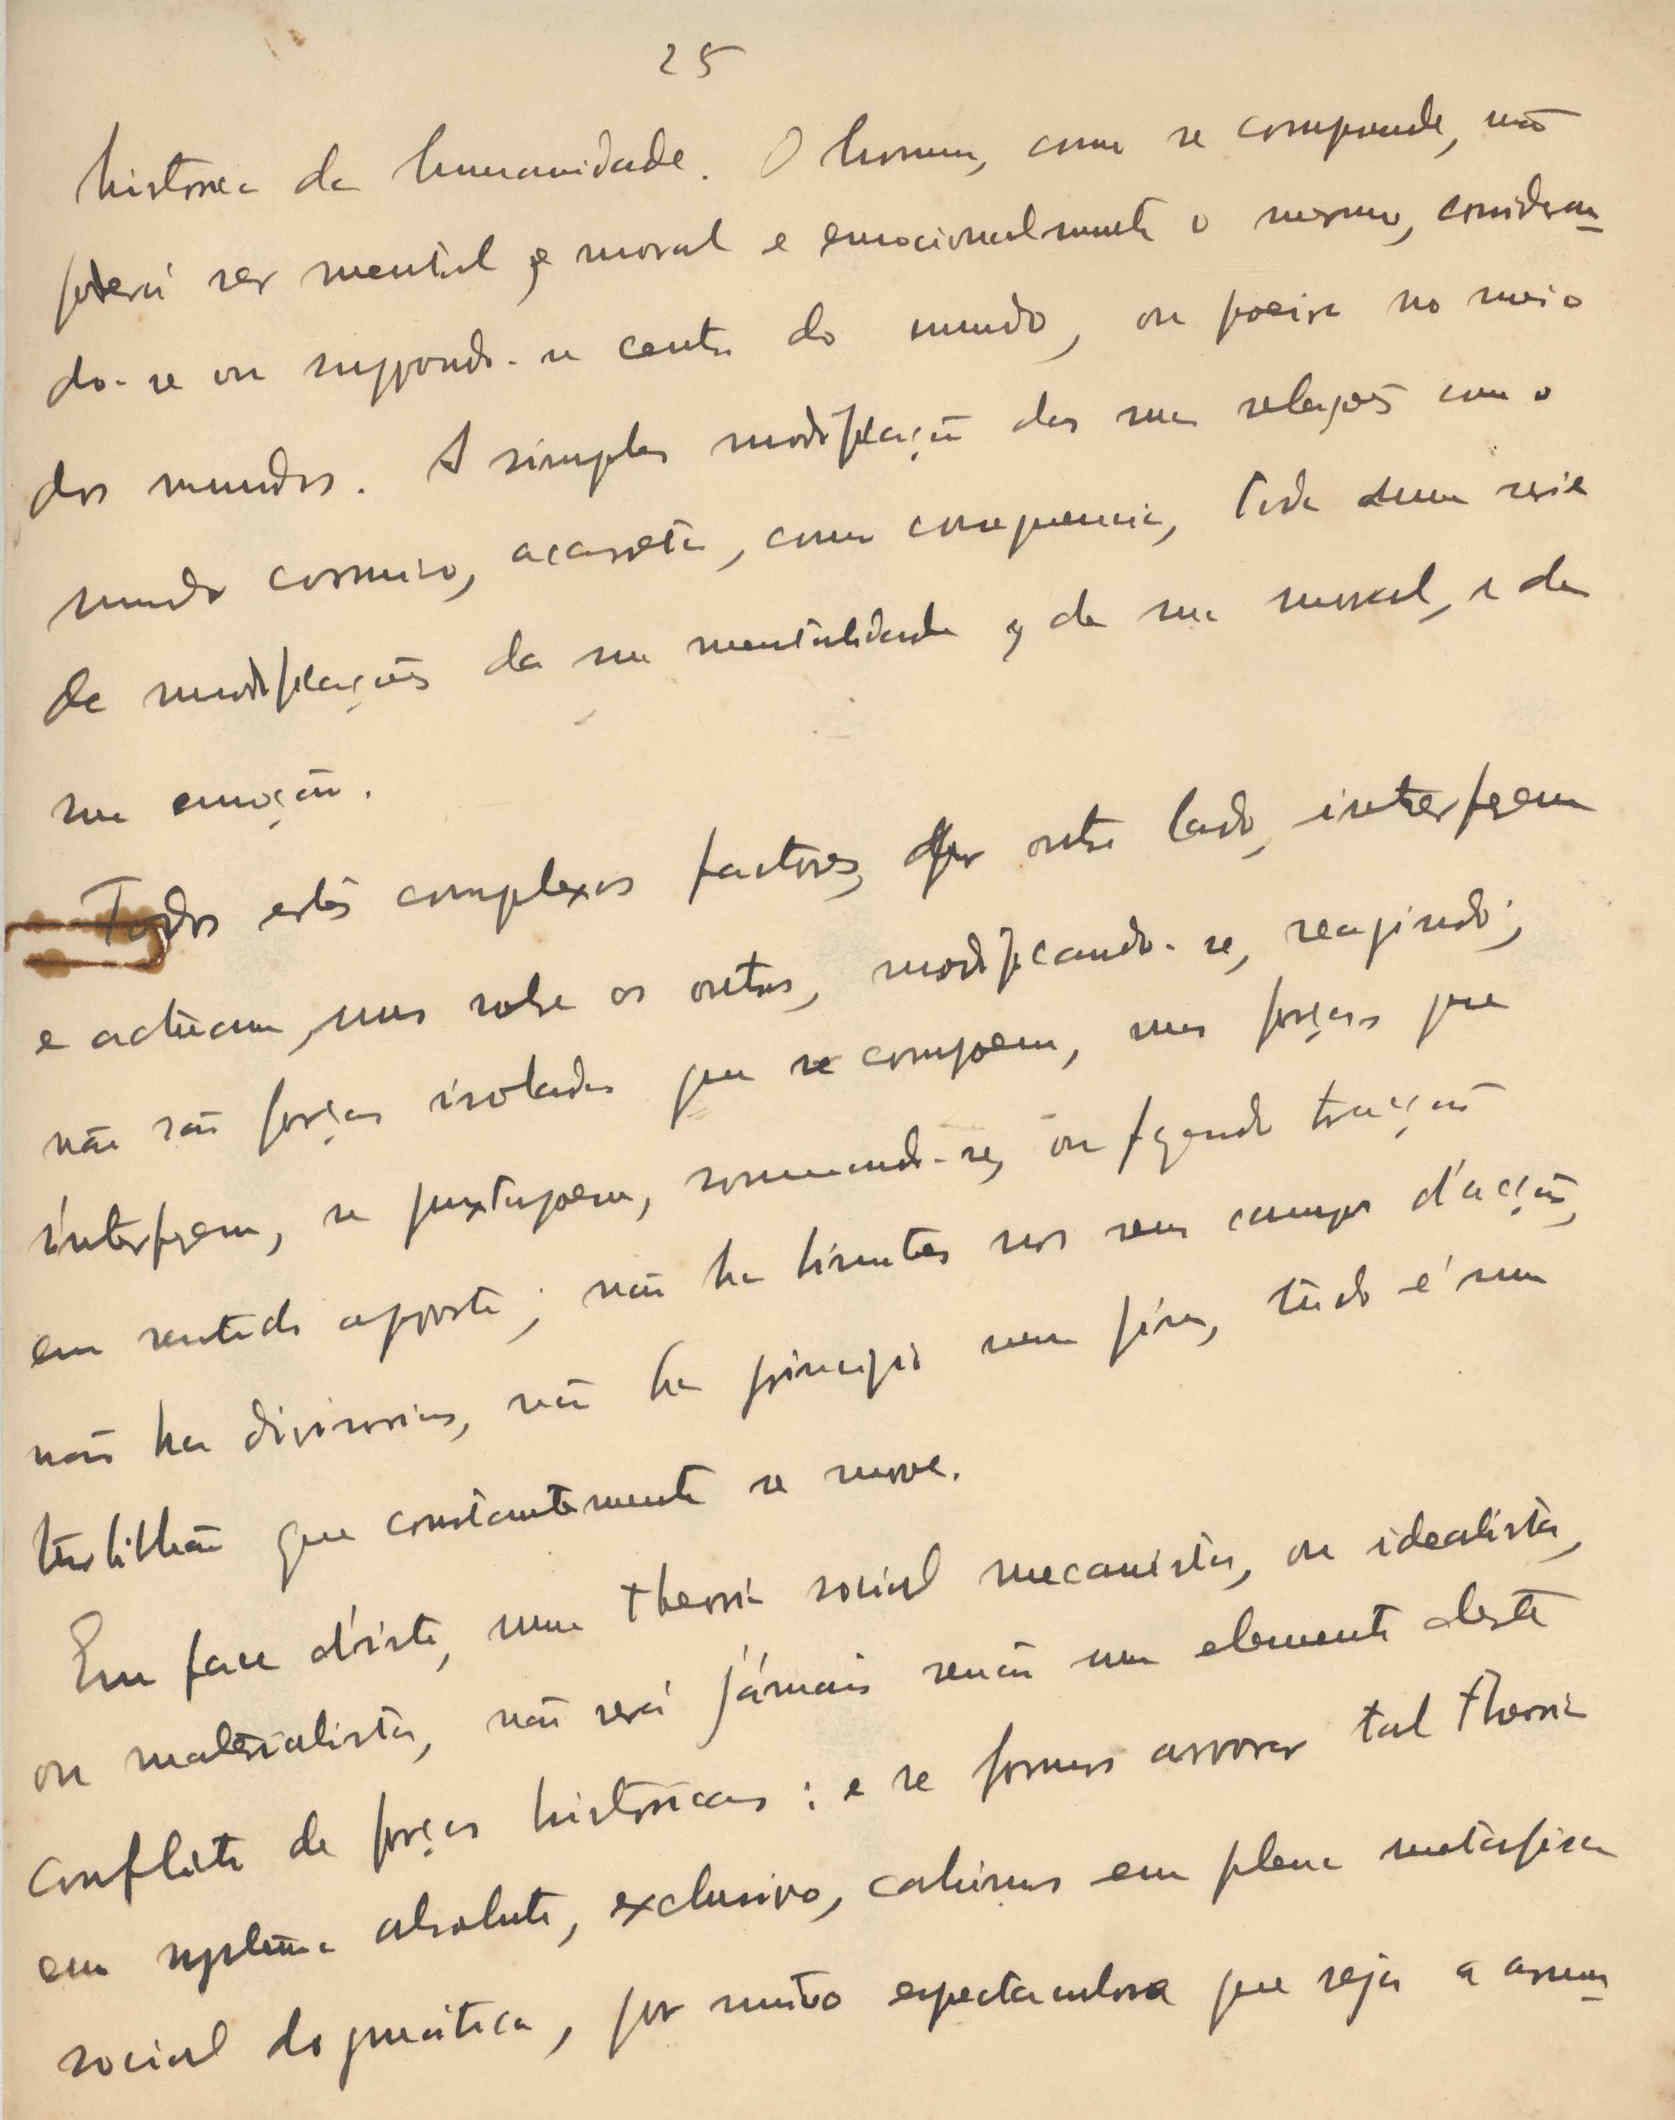 25
historia da humanidade. O homem, como se comprende, não
poderá ser mental e moral e emocionalmente o mesmo, consideran-
do-se ou suppondo-se centro do mundo, ou poeira no meio
dos mundos. A simples modificação das suas relações com o
mundo cosmico, acarreta, como consequencia, toda uma serie
de modificações da sua mentalidade, da sua moral, e da
sua emoção.
Todos estes complexos factores, por outro lado, interferem
e actuam, uns sobre os outros, modificando-se, reagindo;
não são forças isoladas que se compoem, mas forças que
interferem, se juxtapoem, sommando-se, ou fazendo tracção
em sentido opposto; não ha limites nos seus campos d'acção,
não ha divisorias, não ha principio nem fim, tudo é um
turbilhão que constantemente se move.
Em face d'isto, uma theoria social mecanista, ou idealista,
ou materialista, não será jámais senão um elemento deste
conflicto de forças historicas: e se formos arvorar tal theoria
em systema absoluto, exclusivo, cahimos em plena metafisica
social dogmatica, por muito espectaculosa que seja a assum-